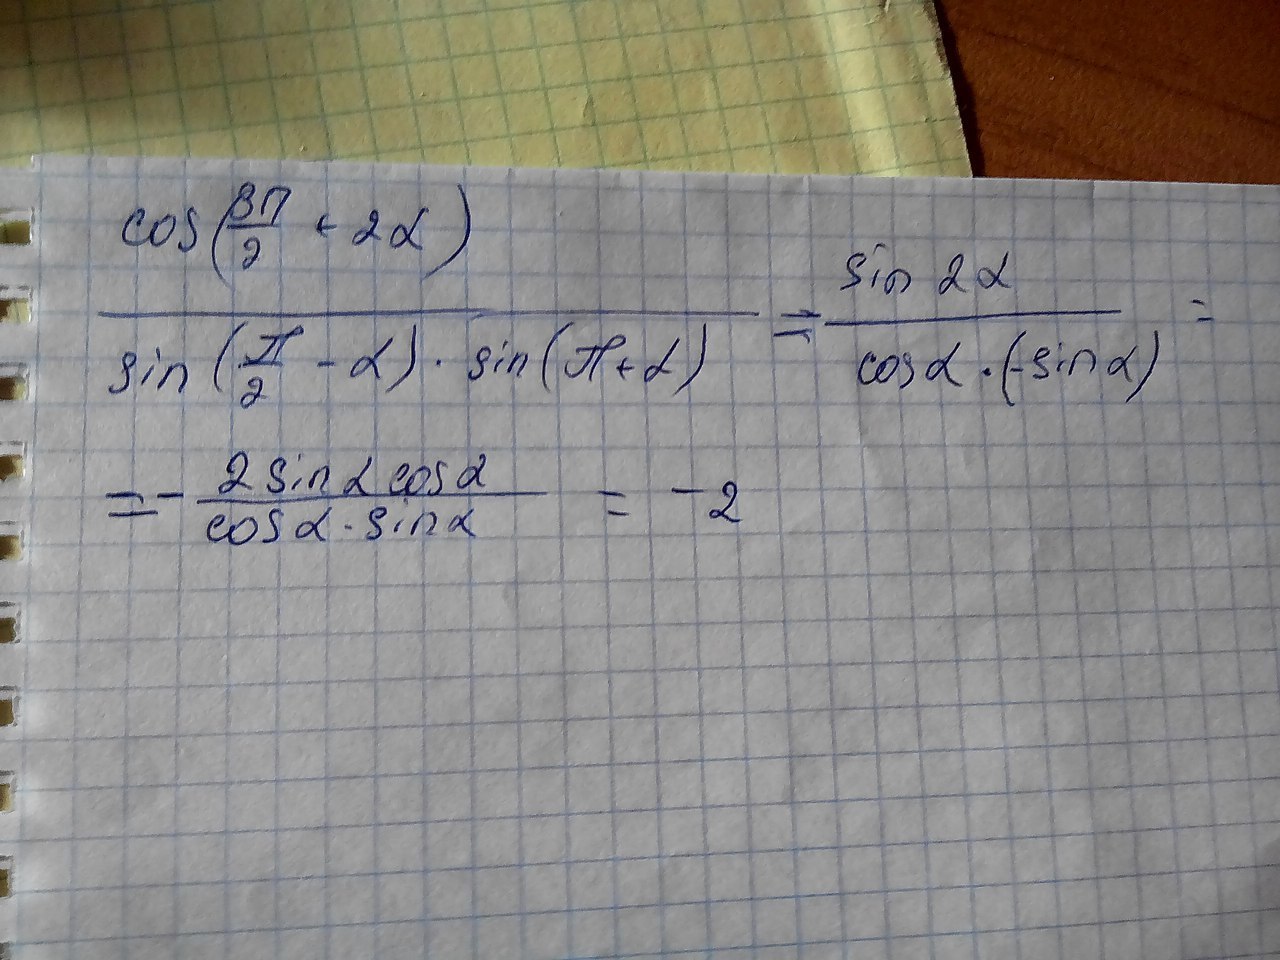 cos(3π/2 + 2α) / sin(π/2 - α) · sin(π + α) = sin 2α / cosα · (-sinα) =
= - 2 sinα cosα / cosα · sinα = -2